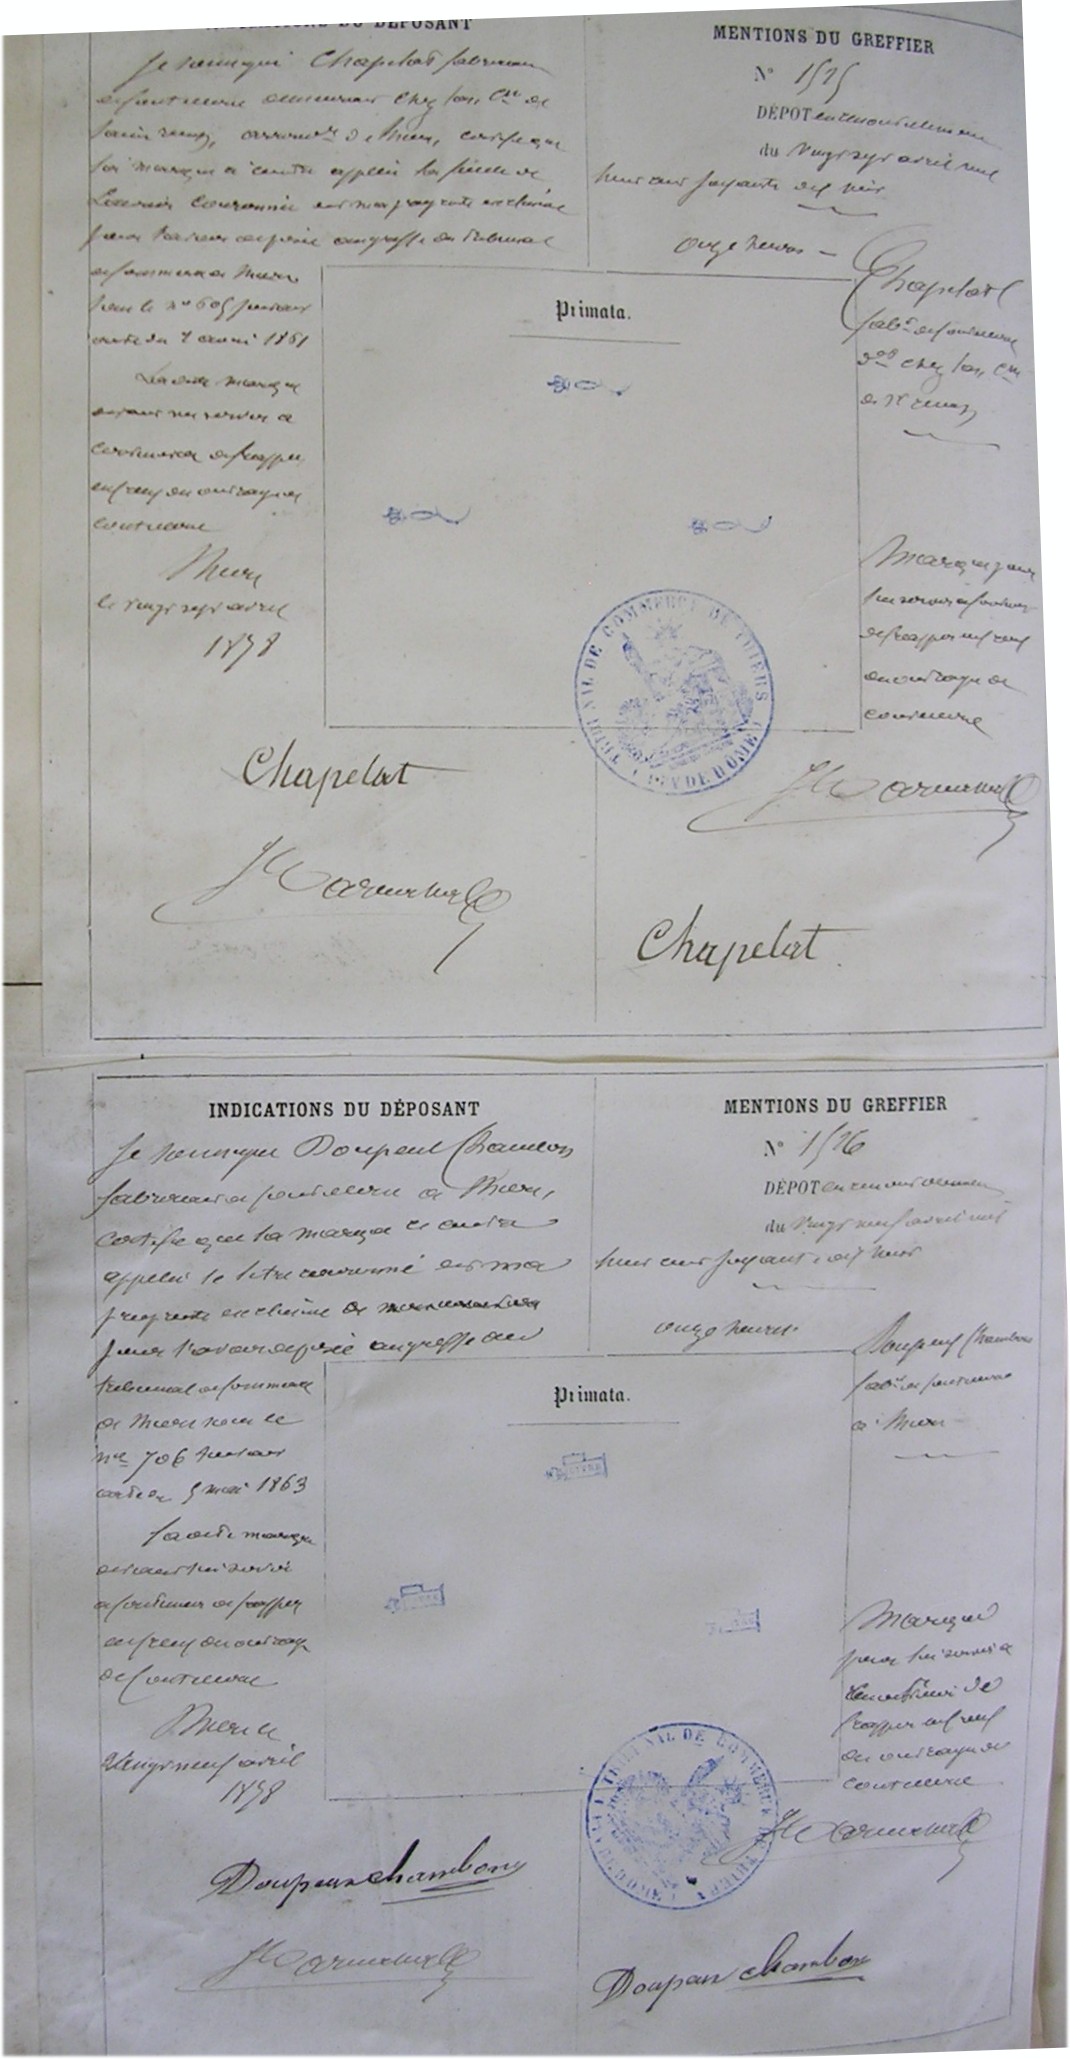 INDICATIONS DU DÉPOSANT
Je soussigné Chapelat fabricant
de coutellerie demeurant chez
saint remy, de Thiers, certifie que
la marque ci contre appelée la de
couronnée est ma propriété exclusive
pour l'avoir déposée au greffe du Tribunal
de commerce de Thiers
sous le n° 605 suivant
acte du 1861
La dite marque
devant me servir a
continuer de frapper
en creux du ouvrages de
coutellerie
Thiers
le vingt sept avril
1878
Chapelat
MENTIONS DU GREFFIER
N° 1525
DÉPOT en renouvellement
du vingt sept avril mil
huit cent soixante dix huit
onze heures
Chapelat
fabt de coutellerie
chez
de St remy
Primata.
TRIBUNAL DE COMMERCE DE THIERS (PUY DE DOME)
Marque pour
lui servir a continuer
de frapper en creux
du ouvrages de
coutellerie
Chapelat
INDICATIONS DU DÉPOSANT
Je soussigné Doupeux Chambon
fabricant de coutellerie a Thiers,
certifie que la marque ci contre
appelée le titre couronné est ma
propriété exclusive
pour l'avoir déposée au greffe du
tribunal de commerce
de Thiers sous le
n° 706 suivant
acte du 5 mai 1863
La dite marque
devant lui servir
a continuer de frapper
en creux du ouvrages
de coutellerie
Thiers le
Vingt neuf avril
1878
Doupeux Chambon
MENTIONS DU GREFFIER
N° 1526
DÉPOT en renouvellement
du vingt neuf avril mil
huit cent soixante dix huit
onze heures
Doupeux Chambon
fabt de coutellerie
a Thiers
Primata.
TRIBUNAL DE COMMERCE DE THIERS (PUY DE DOME)
Marque
pour lui servir a
continuer de
frapper en creux
du ouvrages de
coutellerie
Doupeux Chambon